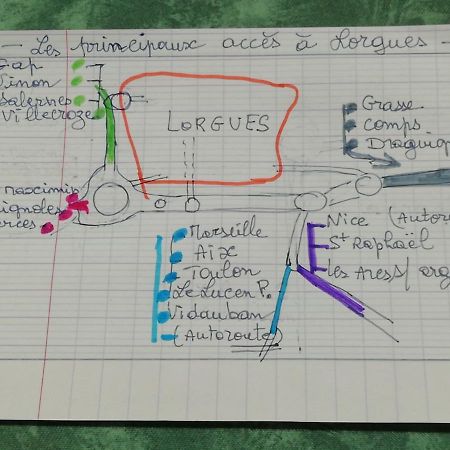 - Les principaux accès à Lorgues -
Gap
Vinon
Salernes
Villecroze
LORGUES
Grasse
Comps
Draguig
maximin
ignoles
erces
Marseille
Aix
Toulon
Le Lucen P.
Vidauban
(Autoroute)
Nice (Autoro
St Raphaël
les Arcs/ arg